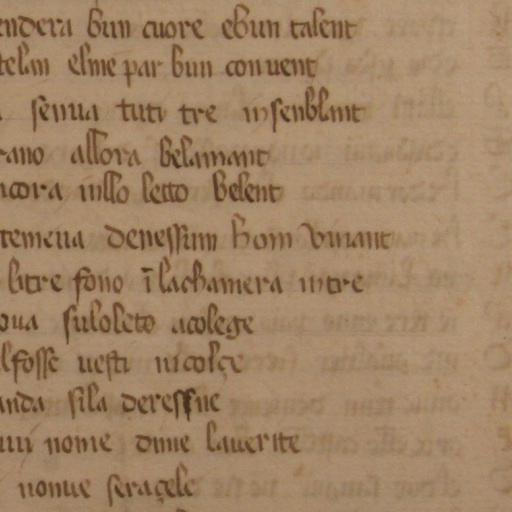 endera bun cuore ebun talent
telm elme par bun conuent
senua tuti tre insenblmt
rano allora belamant
ncora inllo letto belent
temeua denessun hom viuant
litre fono ī lachamera intre
oua suloleto acolege
lfosse uesti nicolçe
anda sila deresſne
nome dime lauerite
nonue seraçele